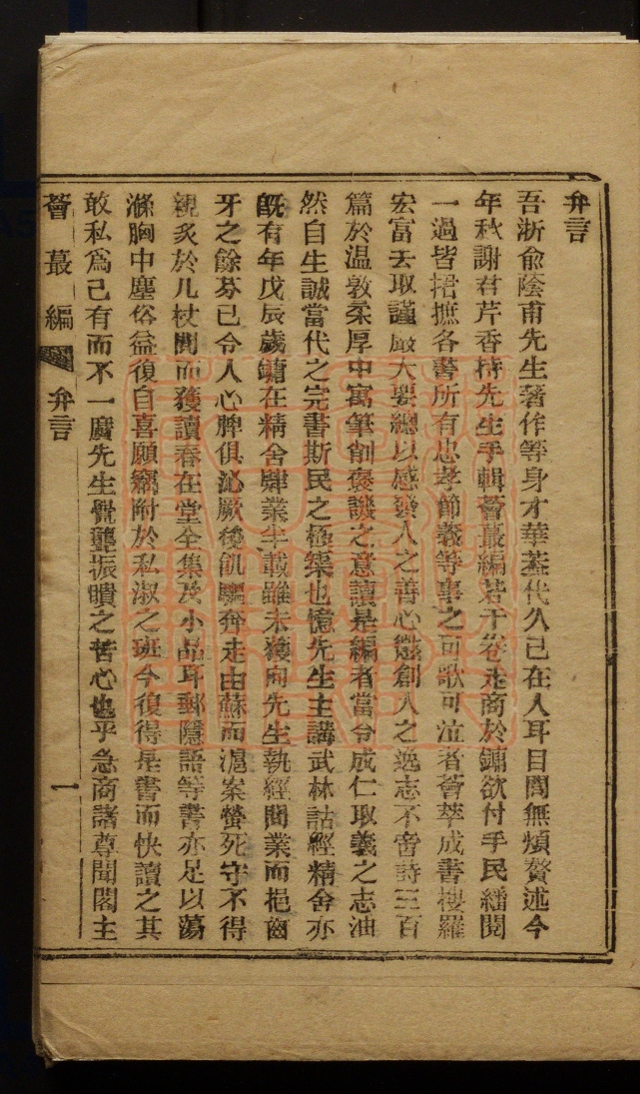 弁言
吾浙俞蔭甫先生著作等身才華蓋代久已在人耳目間無煩贅述今
年秋謝君芹香持先生手輯薈蕞編若干卷走商於鏞欲付手民繙閱
一過皆捃摭各書所有忠孝節義等事之可歌可泣者薈萃成書搜羅
宏富去取謹嚴大要總以感發人之善心懲創人之逸志不啻詩三百
篇於温敦柔厚中寓筆削褒譏之意讀是編者當令成仁取義之志油
然自生誠當代之完書斯民之極榘也憶先生主講武林詁經精舍亦
旣有年戊辰歲鏞在精舍肄業半載雖未獲向先生執經問業而挹齒
牙之餘芬已令人心脾俱沁厥後飢驅奔走由蘇而滬案螢死守不得
親炙於几杖間而獲讀春在堂全集及小品耳郵隱語等書亦足以蕩
滌胸中塵俗益復自喜願竊附於私淑之班今復得是書而快讀之其
敢私爲己有而不一廣先生覺聾振聵之苦心也乎急商諸尊聞閣主
薈蕞編 弁言 一